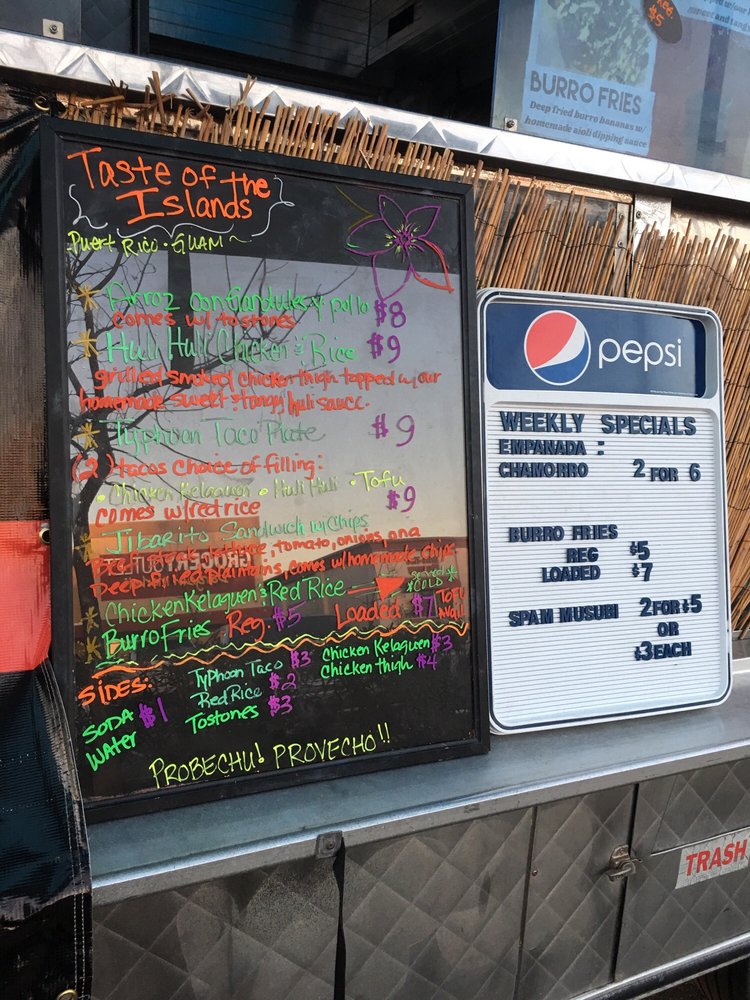 Taste of the
Islands
Puert Rico · Guam ~
* Arroz con Gandules y pollo $8
comes w/ tostones
* Huli Huli Chicken & Rice $9
grilled smoked chicken thigh topped w/ our
homemade sweet & tangy huli sauce.
* Typhoon Taco Plate $9
(2) tacos choice of filling:
· Chicken Kelaguen · Huli Huli · Tofu
comes w/ red rice $9
* Jibarito Sandwich w/ Chips
lettuce, tomato, onions, and
Deep fried plantains, comes w/ homemade chips
* Chicken Kelaguen & Red Rice
*COLD*
* Burro Fries Reg $5 Loaded $7 TOFU
AVAIL
SIDES:
SODA $1
Water
Typhoon Taco $3
Red Rice $2
Tostones $3
Chicken Kelaguen $3
Chicken thigh $4
PROBECHU! PROVECHO!!
BURRO FRIES
Deep fried burro bananas w/
homemade aioli dipping sauce
$5
pepsi
WEEKLY SPECIALS
EMPANADA :
CHAMORRO 2 FOR 6
BURRO FRIES
REG $5
LOADED $7
SPAM MUSUBI 2 FOR $5
OR
$3 EACH
TRASH